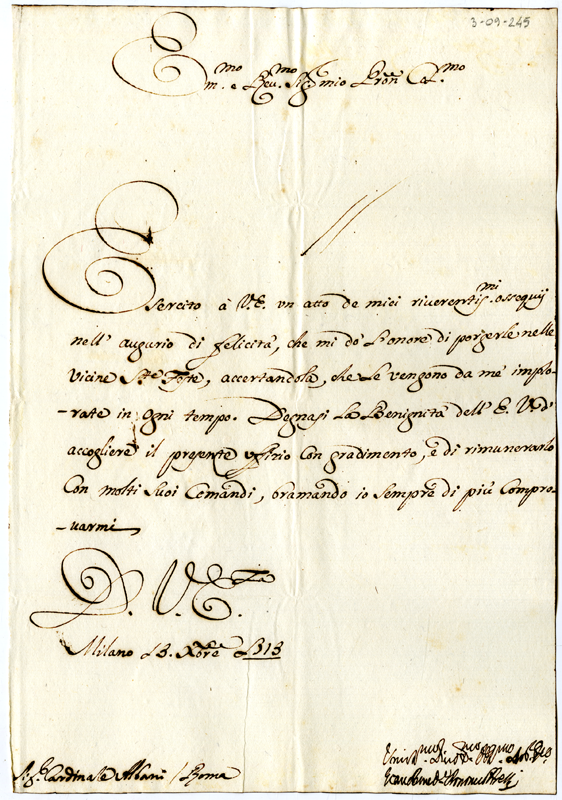 3-09-245
Em.mo e Reu.mo Sig.r mio Pron Col.mo
Esercito à V.E. vn atto de miei riuerentis.mi ossequij
nell' augurio di felicità, che mi dò l'onore di porgerle nelle
vicine S.te Feste, accertandola, che Le vengono da me implo-
-rate in ogni tempo. Degnasi La Benignità dell' E. V. d'
accogliere il presente vffizio con gradimento, e di rimunerarlo
con molti Suoi Comandi, bramando io sempre di più compro-
-uarmi
D. V. E.za
Milano 13. Xbre 1713
S.r Cardinale Albani / Roma